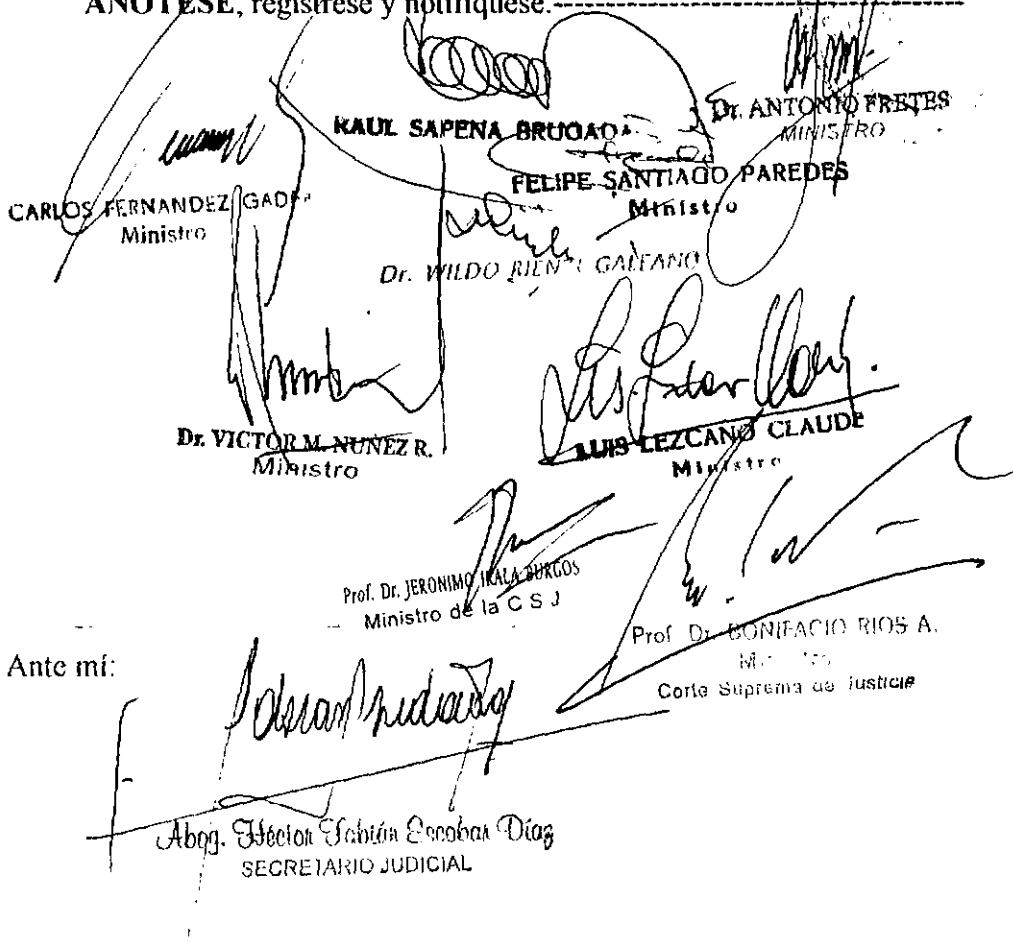 ANOTESE, regístrese y notifíquese.--------------------------------------------
RAUL SAPENA BRUGADA
Dr. ANTONIO FRETES
MINISTRO
FELIPE SANTIAGO PAREDES
Ministro
CARLOS FERNANDEZ GADEA
Ministro
Dr. WILDO RIENZI GALEANO
Dr. VICTOR M. NUÑEZ R.
Ministro
LUIS LEZCANO CLAUDE
Ministro
Prof. Dr. JERONIMO IRALA BURGOS
Ministro de la C S J
Prof. Dr. BONIFACIO RIOS A.
Ministro
Corte Suprema de Justicia
Ante mí:
Abog. Héctor Fabián Escobar Díaz
SECRETARIO JUDICIAL